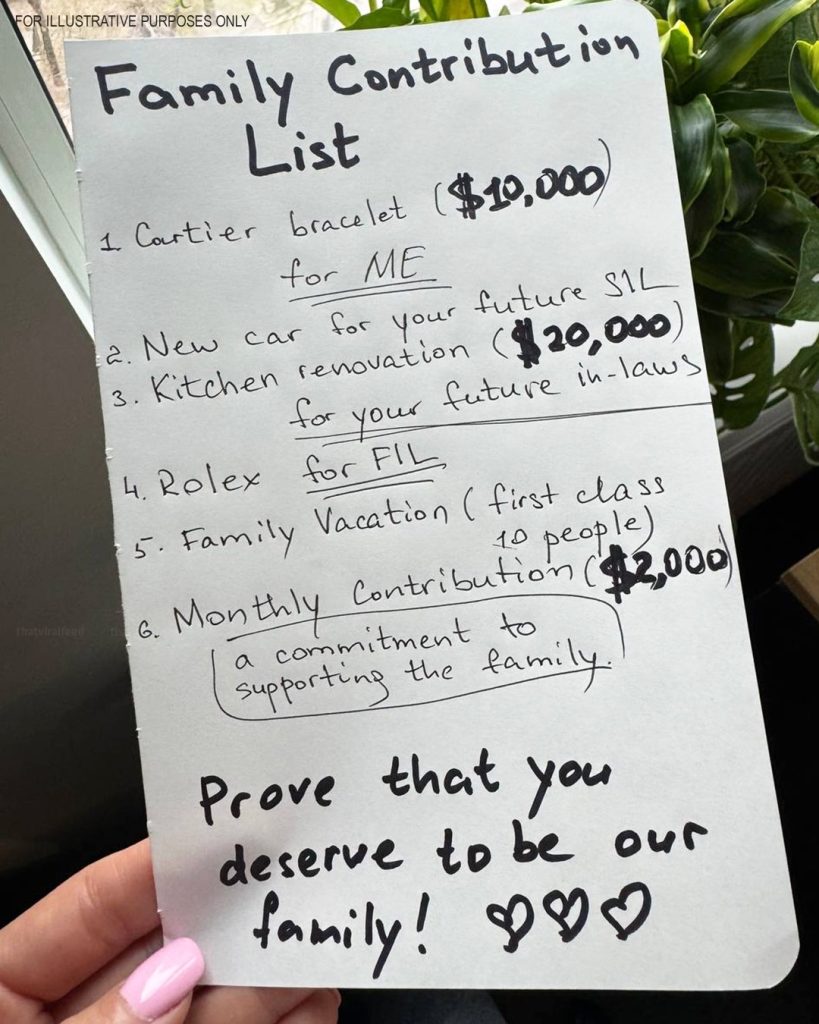 FOR ILLUSTRATIVE PURPOSES ONLY
Family Contribution
List
1. Cartier bracelet ($10,000)
for ME
2. New car for your future SIL
3. Kitchen renovation ($20,000)
for your future in-laws
4. Rolex for FIL
5. Family Vacation (first class
10 people)
6. Monthly Contribution ($2,000)
a commitment to
supporting the family.
thatviralfeed
Prove that you
deserve to be our
family! ♡♡♡